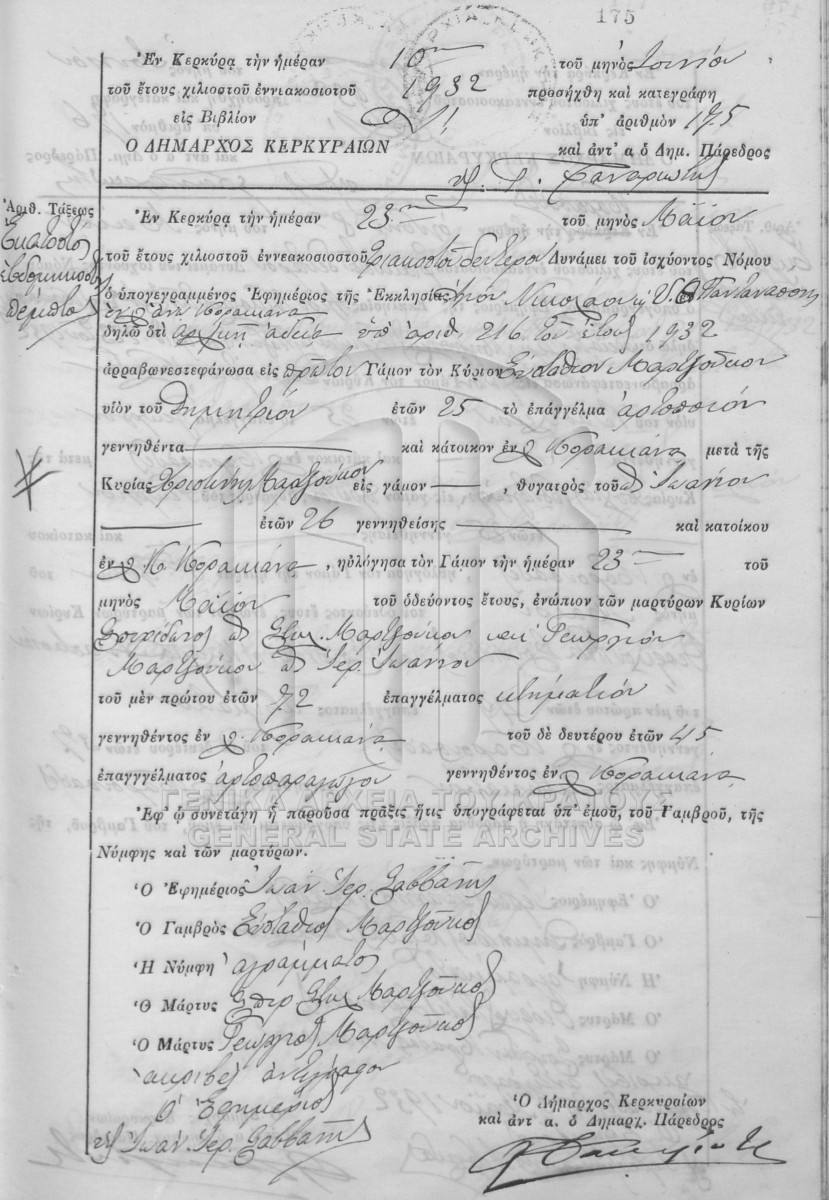 175
Ἐν Κερκύρᾳ τὴν ἡμέραν 10 τοῦ μηνὸς Ἰουνίου
τοῦ ἔτους χιλιοστοῦ ἐννιακοσιοτοῦ 1932 προσήχθη καὶ κατεγράφη
εἰς Βιβλίον ὑπ' ἀριθμὸν 175
Ο ΔΗΜΑΡΧΟΣ ΚΕΡΚΥΡΑΙΩΝ καὶ ἀντ' α ὁ Δημ. Πάρεδρος
Ἀριθ. Τάξεως
Ἑκατοστὸς
ἑβδομηκοστὸς
πέμπτος
Ἐν Κερκύρᾳ τὴν ἡμέραν 23 τοῦ μηνὸς Μαΐου
τοῦ ἔτους χιλιοστοῦ ἐννεακοσιοστοῦ τριακοστοῦ δευτέρου Δυνάμει τοῦ ἰσχύοντος Νόμου
ὁ ὑπογεγραμμένος Ἐφημέριος τῆς Ἐκκλησίας Νικολάου
Κορακιάνα
δηλῶ ὅτι ἀδείᾳ ὑπ' ἀριθ. 216 τοῦ ἔτους 1932
ἀρραβωνεστεφάνωσα εἰς πρῶτον Γάμον τὸν Κύριον Εὐστάθιον Μαρτζοῦκον
υἱὸν τοῦ Δημητρίου ἐτῶν 25 τὸ ἐπάγγελμα ἀρτοποιόν
γεννηθέντα καὶ κάτοικον ἐν Κορακιάνᾳ μετὰ τῆς
Κυρίας Χριστίνης Μαρτζούκου εἰς γάμον , θυγατρὸς τοῦ Ἰωάννου
ἐτῶν 26 γεννηθείσης καὶ κατοίκου
ἐν Κορακιάνᾳ, ηὐλόγησα τὸν Γάμον τὴν ἡμέραν 23 τοῦ
μηνὸς Μαΐου τοῦ ὁδεύοντος ἔτους, ἐνώπιον τῶν μαρτύρων Κυρίων
Σπυρίδωνος Μαρτζούκου καὶ Γεωργίου
Μαρτζούκου Ἰερ. Ἰωάννου
τοῦ μὲν πρώτου ἐτῶν 72 ἐπαγγέλματος κτηματίου
γεννηθέντος ἐν Κορακιάνᾳ τοῦ δὲ δευτέρου ἐτῶν 45
ἐπαγγγέλματος ἀρτοπαραγωγοῦ γεννηθέντος ἐν Κορακιάνᾳ
ΓΕΝΙΚΑ ΑΡΧΕΙΑ ΤΟΥ ΚΡΑΤΟΥΣ
GENERAL STATE ARCHIVES
Ἐφ' ᾧ συνετάγη ἡ παροῦσα πρᾶξις ἥτις ὑπογράφεται ὑπ' ἐμοῦ, τοῦ Γαμβροῦ, τῆς
Νύμφης καὶ τῶν μαρτύρων.
Ὁ Ἐφημέριος Ἰωάν Ἱερ. Σαββάνης
Ὁ Γαμβρὸς Εὐστάθιος Μαρτζοῦκος
Ἡ Νύμφη ἀγράμματος
Ὁ Μάρτυς Σπυρ Μαρτζοῦκος
Ὁ Μάρτυς Γεώργιος Μαρτζοῦκος
ἀκριβὲς ἀντίγραφον
Ὁ Ἐφημέριος
Ἰωάν Ἱερ. Σαββάνης
Ὁ Δήμαρχος Κερκυραίων
καὶ ἀντ α. ὁ Δημαρχ. Πάρεδρος